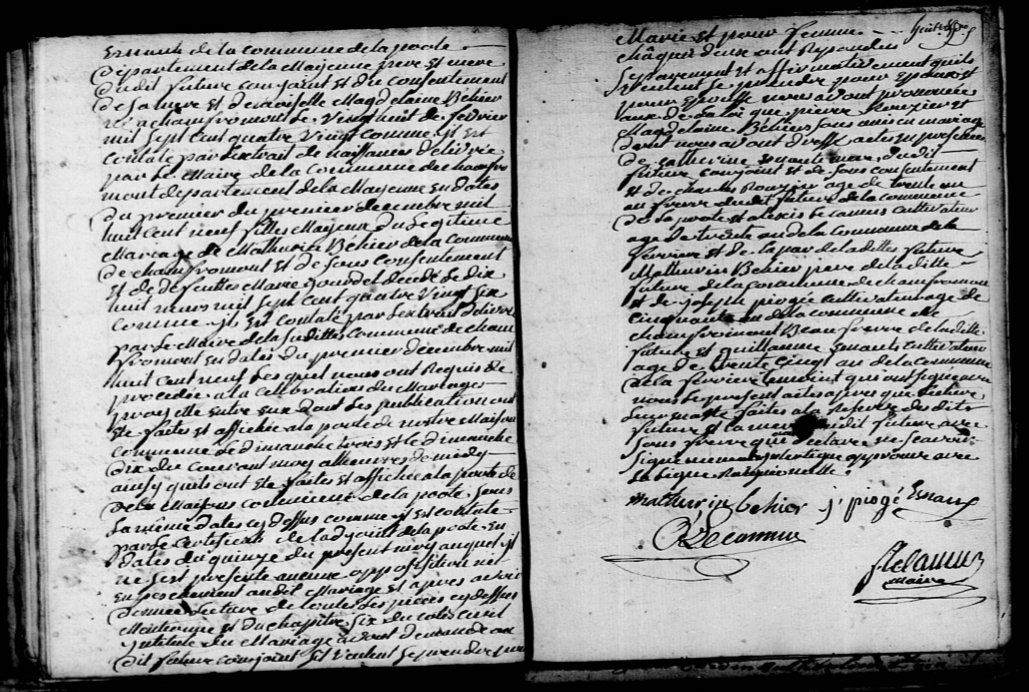 Esnault de la commune de la poole
Département de la Mayenne pere et mere
dudit future conjoint et du consentement
de sa mere et demoiselle Magdelaine Behier
née a chamfromont le vingt huit de fevrier
mil sept cent quatre vingt comme il est
contaté par extrait de naissance delivrée
par le Maire de la commune de chamfro
mont département de la Mayenne en datte
du premier du premier decembre mil
huit cent neuf filles Majeure du Legitime
Mariage de Mathurin Behier de la commune
de chamfromont et de sons consentement
et de defeuttes Marie gourdel décédé le dix
huit mars mil sept cent quatre vingt six
comme il est contaté par lextrait delivré
par le Maire de la susditte commune de cham
fromont en datte du premier decembre mil
huit cent neuf Les quel nous ont Requis de
procedee a la cellebration du Mariages
projette entre eux dont les publication ont
été faites et affichée a la porte de nostre Maison
commune le dimanche trois et le dimanche
dix du courant moy a lheures de midy
ainsy quils ont été faites et affichée a la porte de
de la Maisons commune de la poole sous
la même datte cy dessus comme il est contaté
par le certificat de ladjoint de la poole en
datte du quinze du présent moy auquel il
ne sest presenté aucune oppositition ni
empechement audit Mariage et apres avoir
donnée lecture de toutes les pièces cy dessus
Mentionné et du chapitre six du code civil
intitulé du Mariage avont demandé au
dit future conjoint sil veulent se prendre pour
Marie et pour femme
châqun deux ont Repondu
separement et affirmativement quils
veulent se prendre pour Epoux et
pour Epouse nous avont prononcée
aux de la loi que pierre Rouzier et
Magdelaine Behiers sons unis en mariage
dont nous avont dressé acte en presence
de catherine Esnault mere dudit
future conjoint et de sons consentement
et de charles Rouzier age de trente un
an frerre dudit future de la commune
de la poole et alexis Le camus cultivateur
age de trente an de la commune de la
ferriere et de la par de laditte future
Mathurin Behier pere de laditte
future de la commune de chamfromont
et de joseph piogée cultivateur age de
cinquante an de la commune de
chamfromont Beau frerre de laditte
future et guillaume Esnault cultivateur
age de trente cinq an de la commune
de la ferriere temoint qui ont signé avec
nous le present acte apres que lecture
leur en a été faites a la Reserve desdits
future et la mere dudit future avec
sons frerre qui declare ne scavoir
signe
le signe
mathurin behier j. piogé Esnault
Lecamus
Lecamus
maire